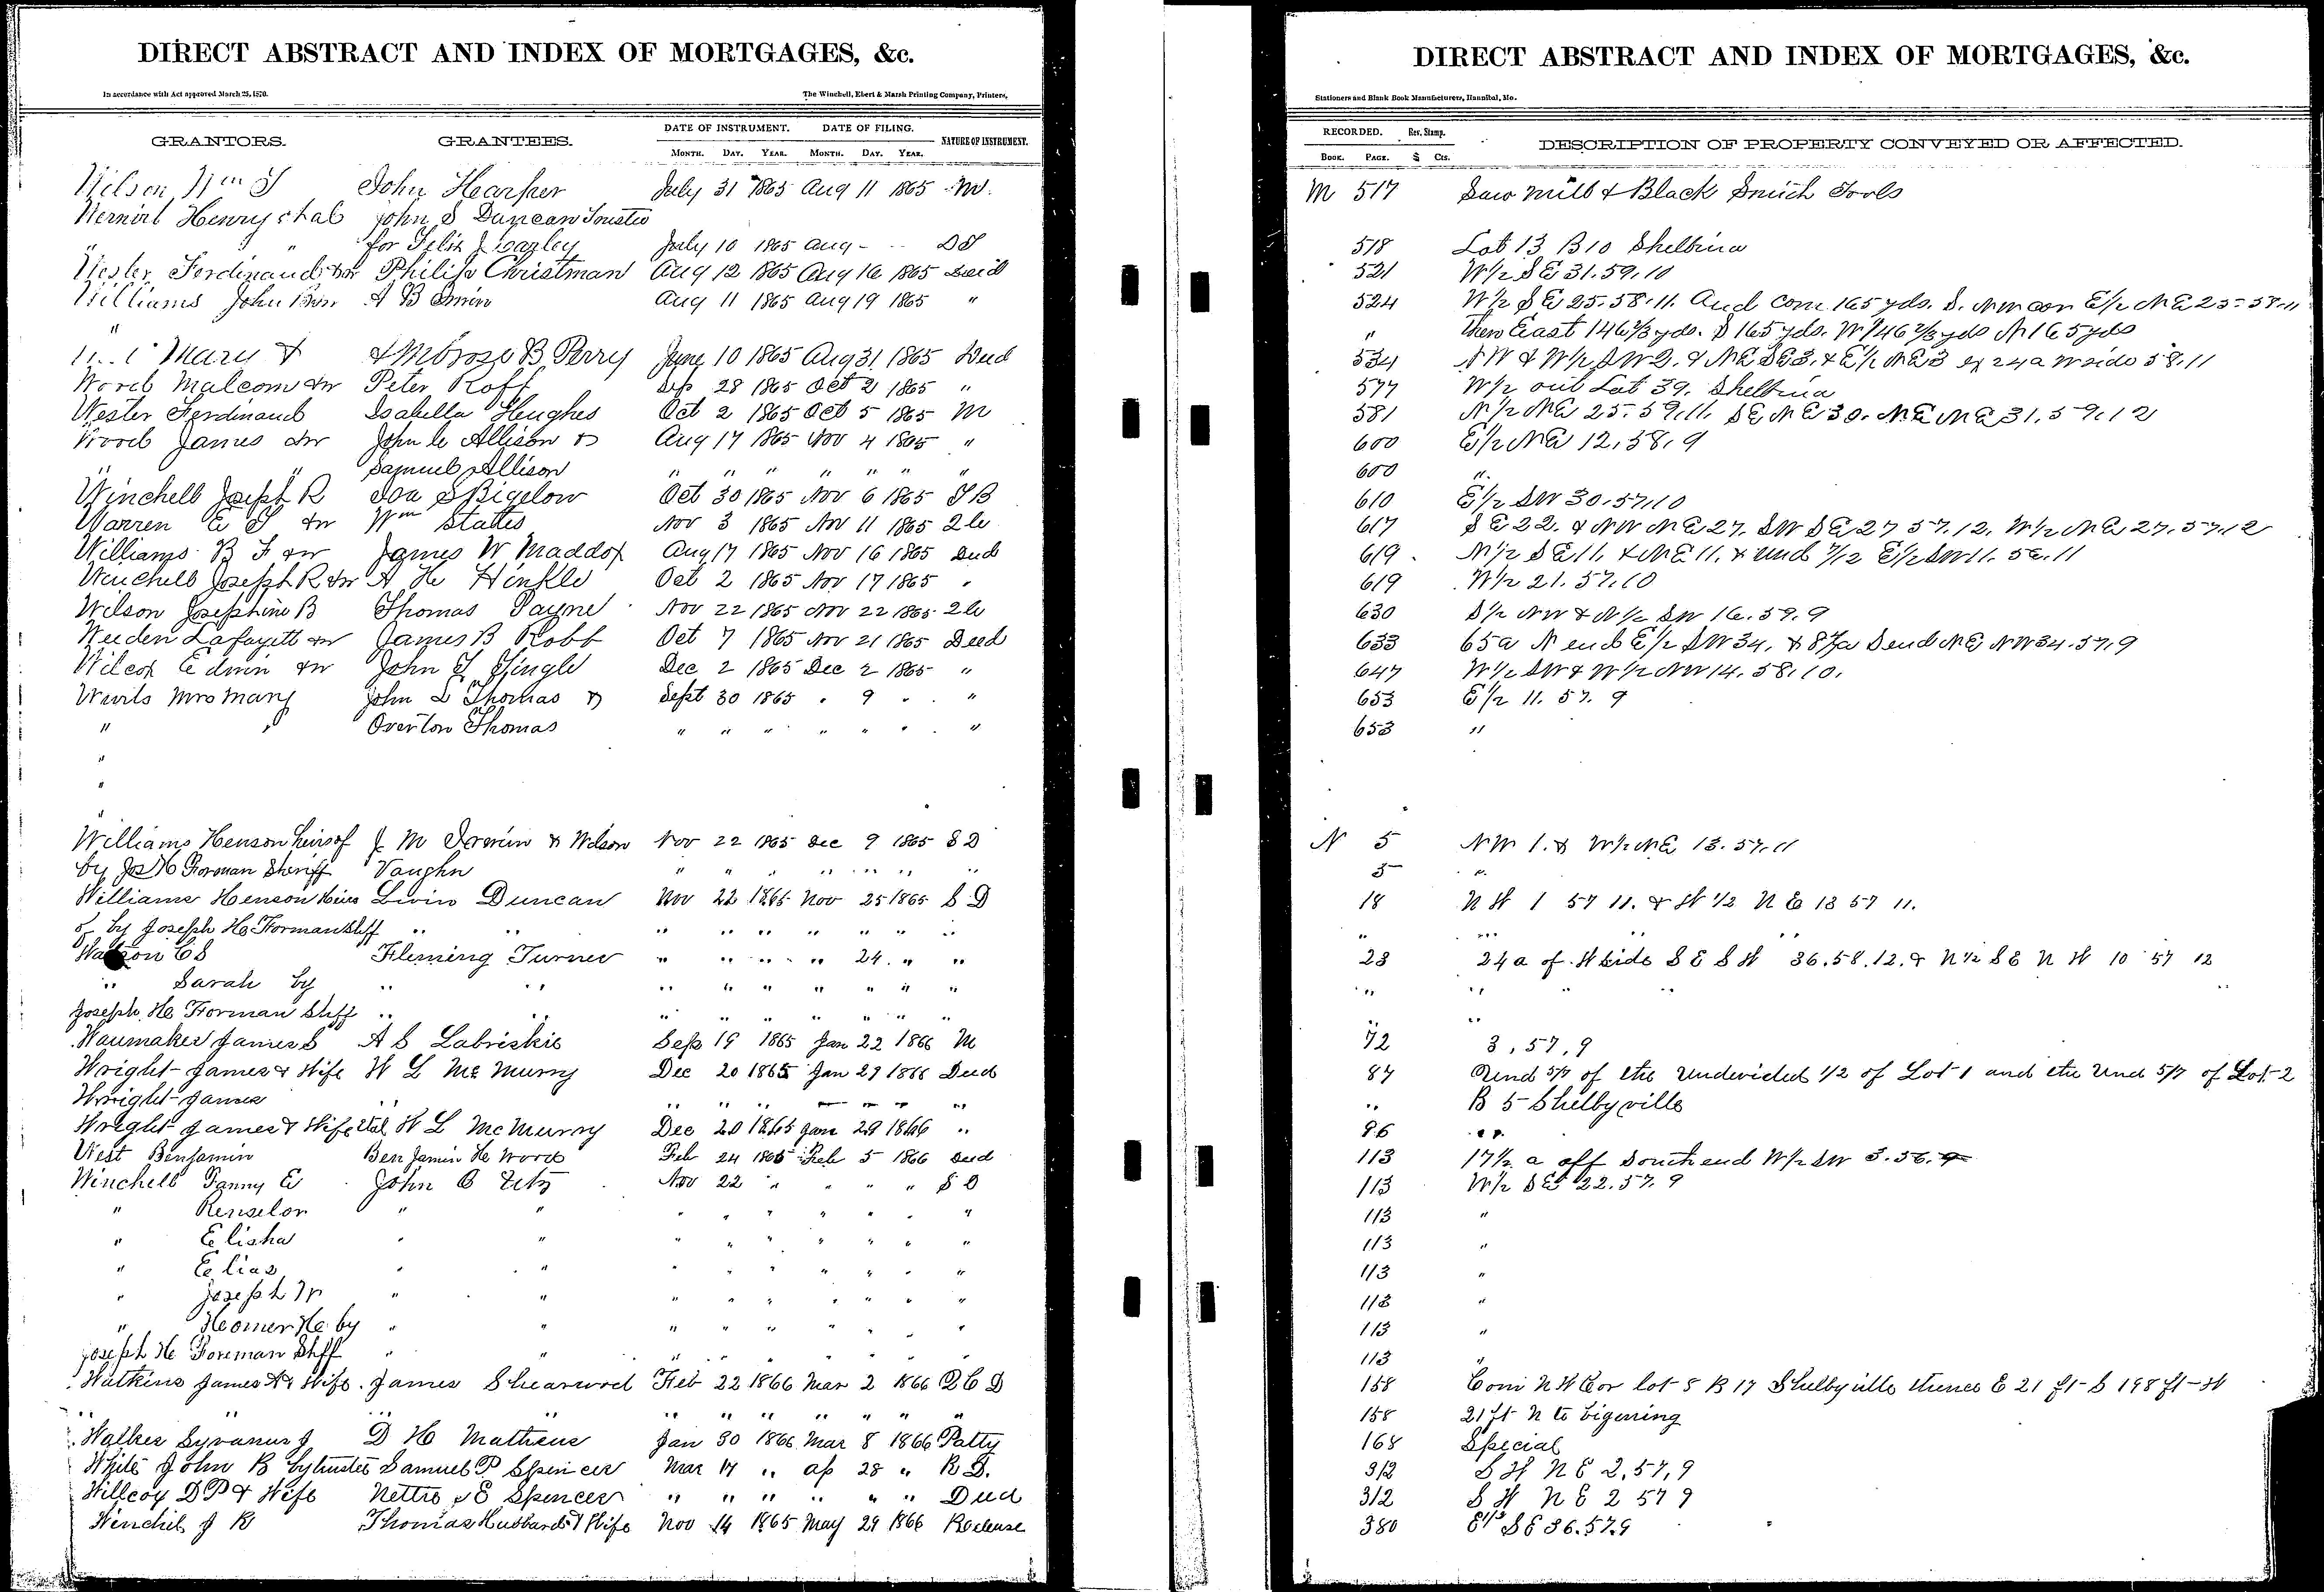 DIRECT ABSTRACT AND INDEX OF MORTGAGES, &c.
In accordance with Act approved March 25, 1870.
The Winchell, Ebert & Marsh Printing Company, Printers,
GRANTORS. GRANTEES. DATE OF INSTRUMENT. DATE OF FILING. NATURE OF INSTRUMENT.
MONTH. DAY. YEAR. MONTH. DAY. YEAR.
Wilson, Wm July 31 1865 Aug 11 1865 M
Henry John S Duncan
for Felix July 10 1865 Aug
Ferdinand Philip Christman Aug 12 1865 Aug 16 1865 Deed
Williams John A B Aug 11 1865 Aug 19 1865 "
Mary Ambrose B Perry June 10 1865 Aug 31 1865 Deed
Malcom Peter Roff Sep 28 1865 Oct 2 1865 "
Wester Ferdinand Isabella Hughes Oct 2 1865 Oct 5 1865 M
Wood James John C Allison & Aug 17 1865 Nov 4 1865 "
" Samuel Allison " " " " " " "
Winchell Joseph R Bigelow Oct 30 1865 Nov 6 1865
Warren Wm States Nov 3 1865 Nov 11 1865
Williams B F James W Maddox Aug 17 1865 Nov 16 1865 Deed
Winchell Joseph R A H Hinkle Oct 2 1865 Nov 17 1865 "
Wilson Josephine B Thomas Payne Nov 22 1865 Nov 22 1865
Lafayett James B Robb Oct 7 1865 Nov 21 1865 Deed
Wilcox Edwin John Dec 2 1865 Dec 2 1865 "
Mrs Mary John L Thomas & Sept 30 1865 " 9 " "
" " Overton Thomas " " " " " " "
"
"
"
Williams Henson heirs of J M & Wilson Nov 22 1865 Dec 9 1865 S D
by Jos H Forman Sheriff Vaughn " " " " " "
Williams Henson Heirs Duncan Nov 22 1865 Nov 25 1865 S D
of by Joseph H Forman Shff " " " " " " " "
Fleming Turner " " " " 24 " "
" Sarah by " " " " " " " " "
Joseph H Forman Shff " " " " " " " " "
James S A S Labriskie Sep 19 1865 Jan 22 1866 M
Wright James & Wife W L McMurry Dec 20 1865 Jan 29 1866 Deed
Wright James " " " " " " "
Wright James & Wife W L McMurry Dec 20 1865 Jan 29 1866 "
West Benjamin Benjamin H Wood Feb 24 1865 Feb 5 1866 Deed
Winchell Fanny E John B Nov 22 " " " " S D
" Renselor " " " " " " " " "
" Elisha " " " " " " " " "
" Elias " " " " " " " " "
" Joseph " " " " " " " " "
" Homer H by " " " " " " " " "
Joseph H Foreman Shff " " " " " " " "
Watkins James & Wife James Shearwood Feb 22 1866 Mar 2 1866 Q C D
" " " " " " " " "
Walker D H Mathews Jan 30 1866 Mar 8 1866
White John B by trustee Samuel P Spencer Mar 17 " ap 28 "
Willcox D P & Wife Spencer " " " " " " Deed
J R Thomas Hubbard & Wife Nov 14 1865 May 29 1866 Release
DIRECT ABSTRACT AND INDEX OF MORTGAGES, &c.
Stationers and Blank Book Manufacturers, Hannibal, Mo.
RECORDED. Rev. Stamp. DESCRIPTION OF PROPERTY CONVEYED OR AFFECTED.
BOOK. PAGE. $ Cts.
M 517 Saw Mill & Black Smith Tools
518 Lot 13 B 10 Shelbina
521 W 1/2 SE 31.59.10
524 W 1/2 SE 25.58.11. And com 165 yds. S. NW cor E 1/2 NE 25-58-11
" East 146 2/3 yds. S 165 yds. W 146 2/3 yds N 165 yds
534 NW & W 1/2 SW 2. & NE SE 3. & E 1/2 NE 3 ex 24 a W side 58.11
577 W 1/2 out Lot 39. Shelbina
581 N 1/2 NE 25.59.11. SE NE 30. NE NE 31.59.12
600 E 1/2 NE 12.58.9
600 "
610 E 1/2 SW 30.57.10
617 SE 22. & NW NE 27. SW SE 27 57.12. W 1/2 NE 27.57.12
619 N 1/2 SE 11. & NE 11. & und 7/12 E 1/2 SW 11. 56.11
619 W 1/2 21.57.10
630 S 1/2 NW & N 1/2 SW 16.59.9
633 65a N end E 1/2 SW 34. & S end NE NW 34.57.9
647 W 1/2 SW & W 1/2 NW 14.58.10.
653 E 1/2 11.57.9
653 "
N 5 NW 1. & W 1/2 NE 13.57.11
5 "
18 N W 1 57 11. & W 1/2 N E 13 57 11.
" "
23 24 a of W side S E S W 36.58.12. & N 1/2 S E N W 10 57 12
" " " " "
" "
72 3, 57, 9
84 Und 5/7 of the Undevided 1/2 of Lot 1 and the Und 5/7 of Lot 2
" B 5 Shelbyville
86 "
113 17 1/2 a off South end W 1/2 SW 3.56.9
113 W 1/2 SE 22.57.9
113 "
113 "
113 "
113 "
113 "
113 "
158 Com N W Cor lot 8 B 17 Shelbyville thence E 21 ft S 198 ft W
158 21 ft N to
168 Special
312 S W N E 2, 57, 9
312 S W N E 2 57 9
380 E 1/2 S E 36.57.9